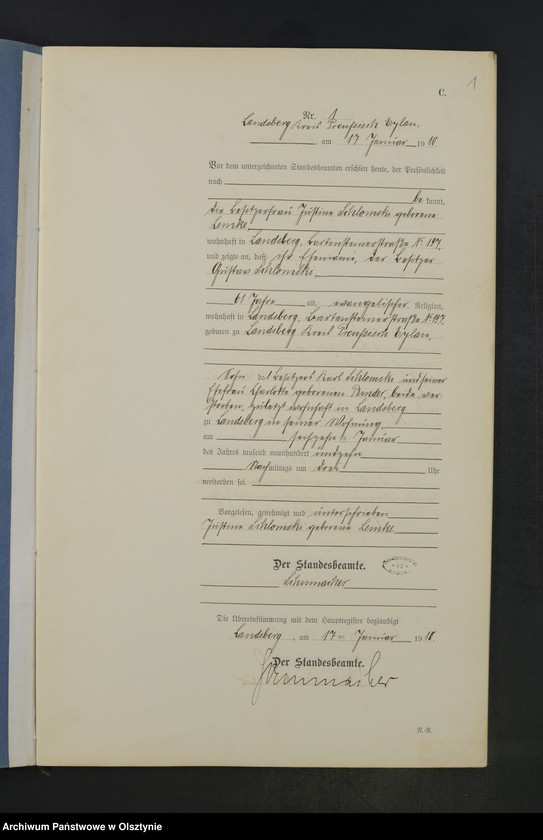 1
C.
Nr. 1
Landsberg Kreis Preußisch Eylau,
am 17 Januar 1910.
Vor dem unterzeichneten Standesbeamten erschien heute, der Persönlichkeit
nach
be kannt,
die Besitzerfrau Justine Schlomski geborene
Lemke
wohnhaft in Landsberg, Bartensteinerstraße No 197,
und zeigte an, daß ihr Ehemann, der Besitzer
Gustav Schlomski,
61 Jahre alt, evangelischer Religion,
wohnhaft in Landsberg, Bartensteinerstraße No 197,
geboren zu Landsberg Kreis Preußisch Eylau,
Sohn des Besitzers Karl Schlomski und seiner
Ehefrau Charlotte geborenen Unde, beide ver
storben, zuletzt wohnhaft in Landsberg
zu Landsberg in seiner Wohnung
am sechzehnten Januar
des Jahres tausend neunhundert und zehn
Nachmittags um drei Uhr
verstorben sei.
Vorgelesen, genehmigt und unterschrieben
Justine Schlomski geborene Lemke
Der Standesbeamte.
Schumacher
Die Übereinstimmung mit dem Hauptregister beglaubigt
Landsberg, am 17 ten Januar 1910.
Der Standesbeamte.
Schumacher
Archiwum Państwowe w Olsztynie